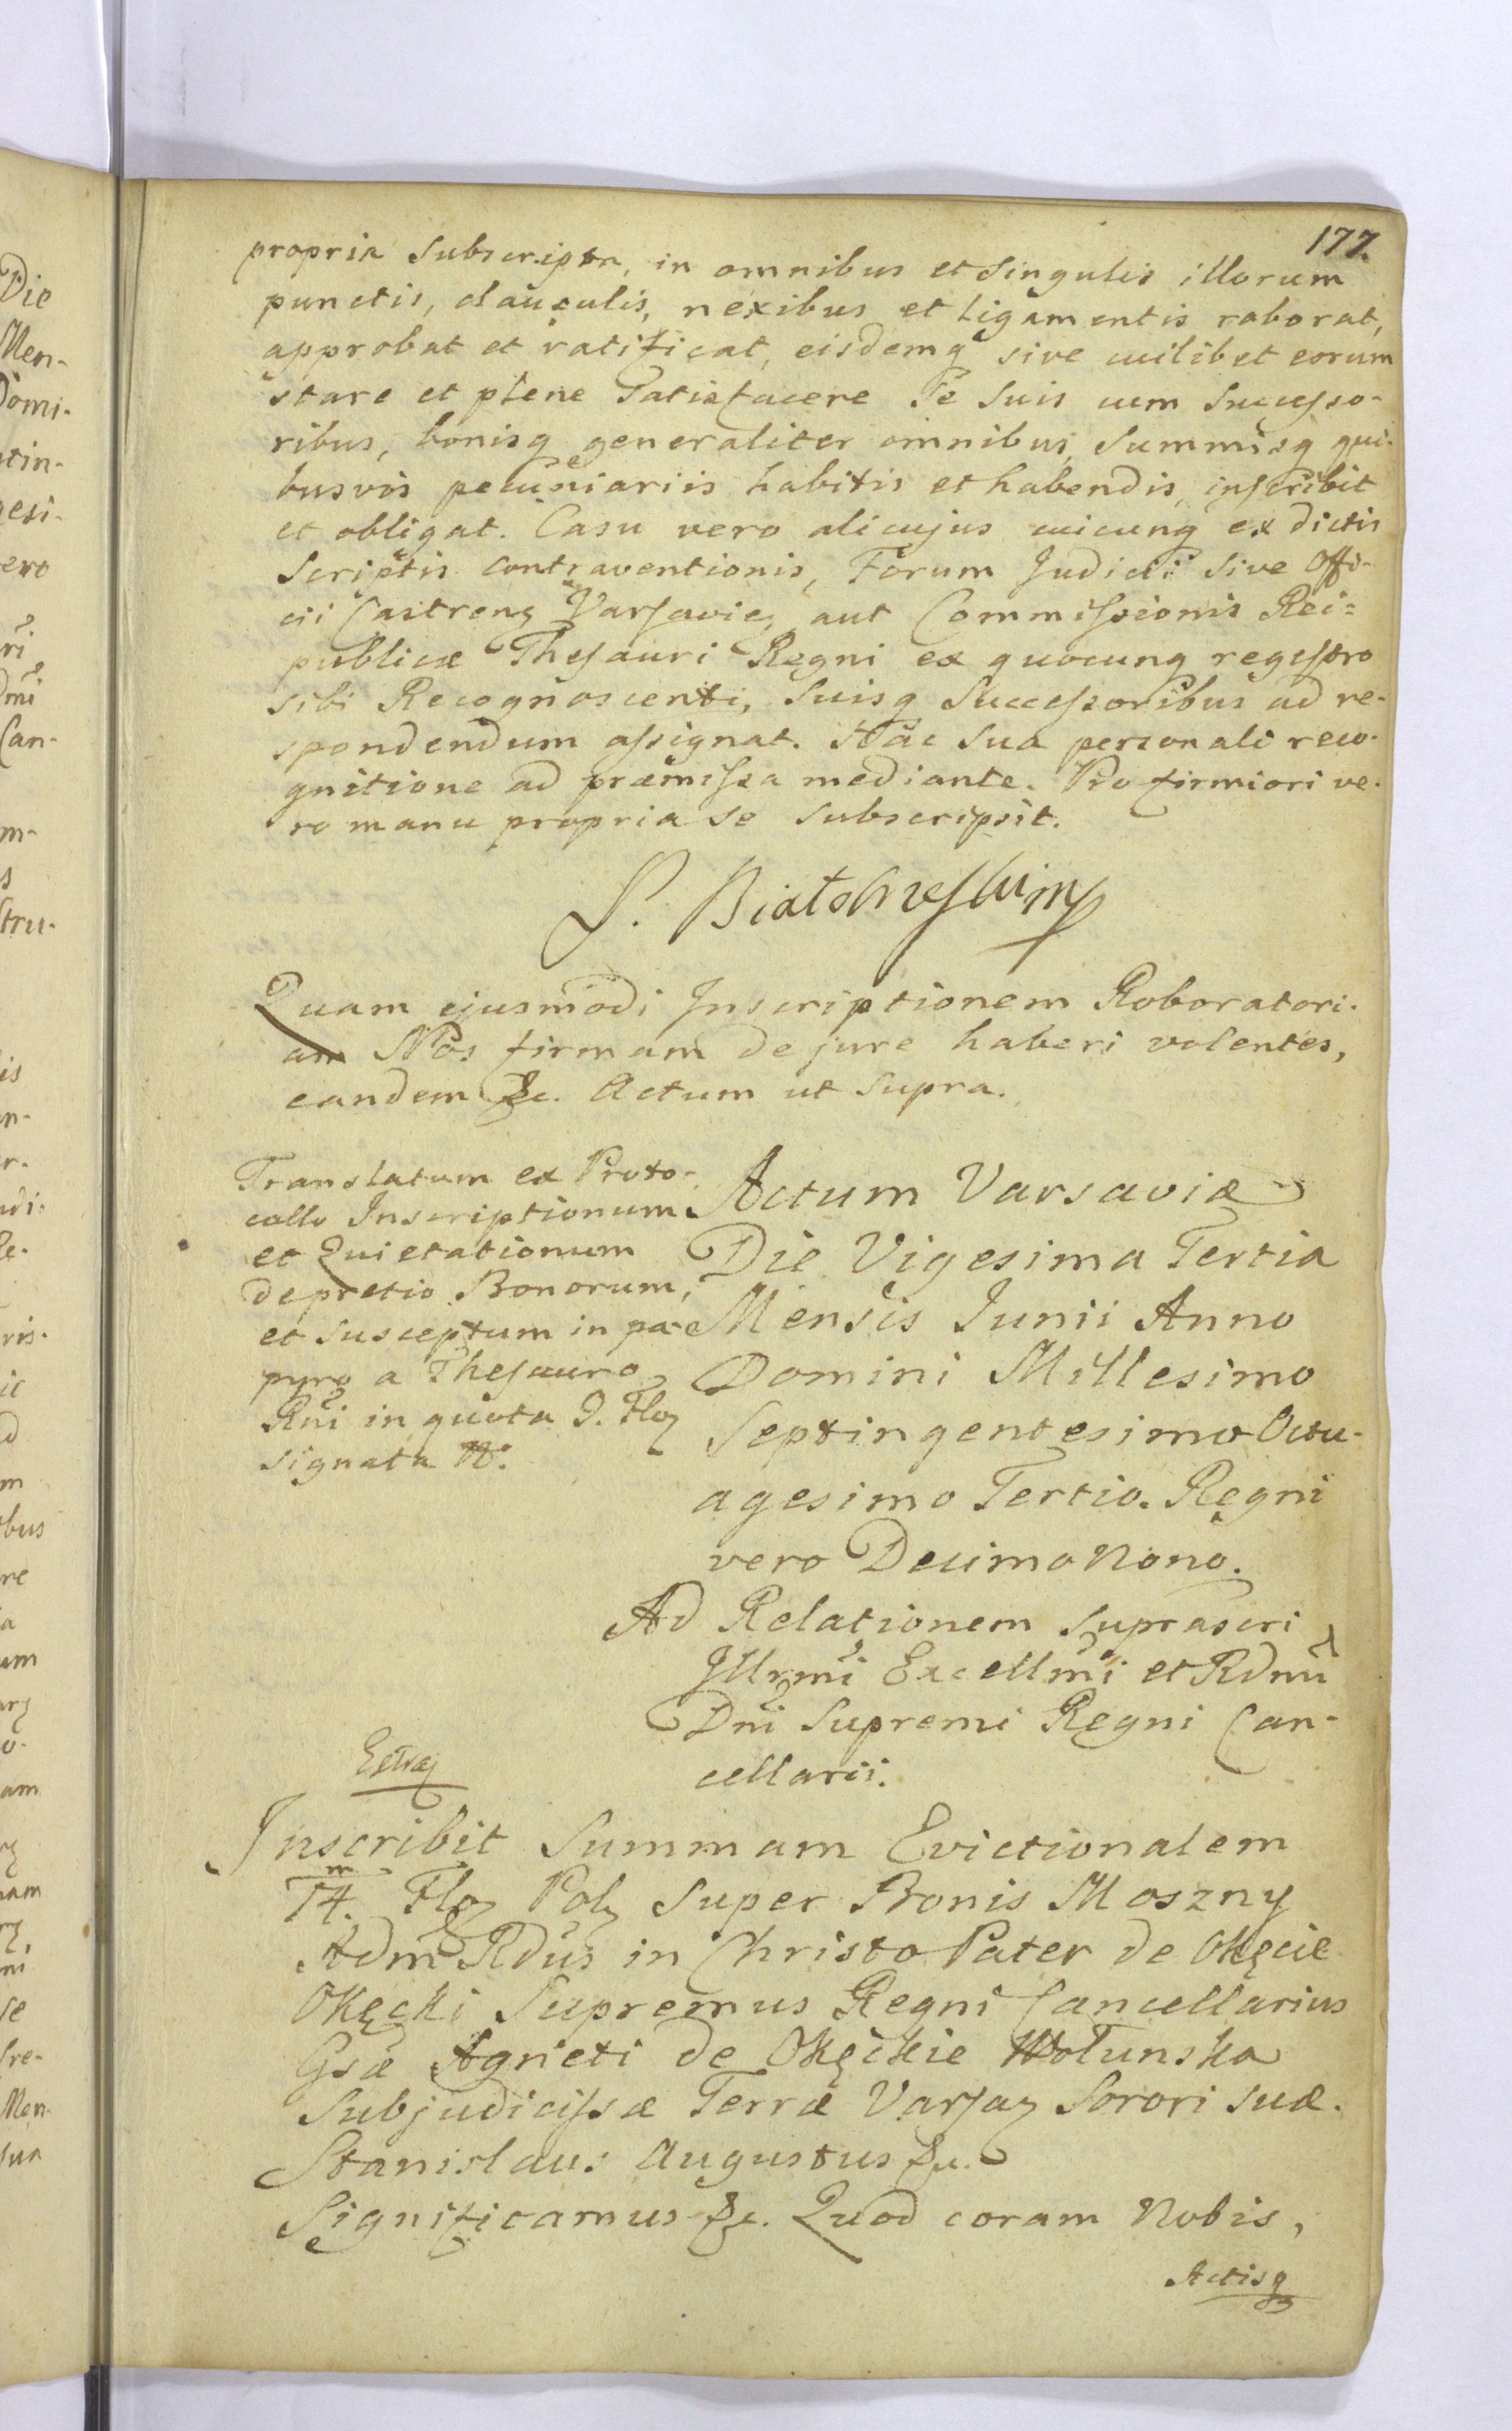 177.
propria subscripta, in omnibus et singulis illorum
punctis, clausulis, nexibus et ligamentis roborat,
approbat et ratificat, eisdemq sive cuilibet eorum
stare et plene satisfacere se suis cum successo-
ribus, bonisq generaliter omnibus, summisq qui-
busvis pecuniariis habitis et habendis, inscribit
et obligat. Casu vero alicujus cuicunq ex dictis
Scriptis contraventionis, Forum Judicii sive Offi-
cii Castren Varsavien, aut Commissionis Rei=
publicæ Thesauri Regni ex quocunq regestro
sibi Recognoscenti, suisq Successoribus ad re-
spondendum assignat. Hac sua personali reco-
gnitione ad præmissa mediante. Pro firmiori ve-
ro manu propria se subscripsit.
Quam ejusmodi Inscriptionem Roboratori-
am Nos firmam de jure haberi volentes,
eandem &c. Actum ut supra.
Translatum ex Proto-
collo Inscriptionum
et Quietationum
de pretio Bonorum,
et susceptum in pa-
pyro a Thesauro
Rni in quota I. Flo
signata N°.
Actum Varsaviæ
Die Vigesima Tertia
Mensis Junii Anno
Domini Millesimo
Septingentesimo Octu-
agesimo Tertio. Regni
vero Decimo Nono.
Ad Relationem suprascri
Illrmi Excellmi et Rdmi
Dni Supremi Regni Can-
cellarii.
Extra
Inscribit Summam Evictionalem
m
14. Flo Pol super Bonis Moszny
Adm Rdus in Christo Pater de Okęcie
Okęcki Supremus Regni Cancellarius
Gsæ Agneti de Okęckie Wolunska
Subjudicissæ Terræ Varsa Sorori suæ.
Stanislaus Augustus &c.
Significamus &c. Quod coram Nobis,
Actisq